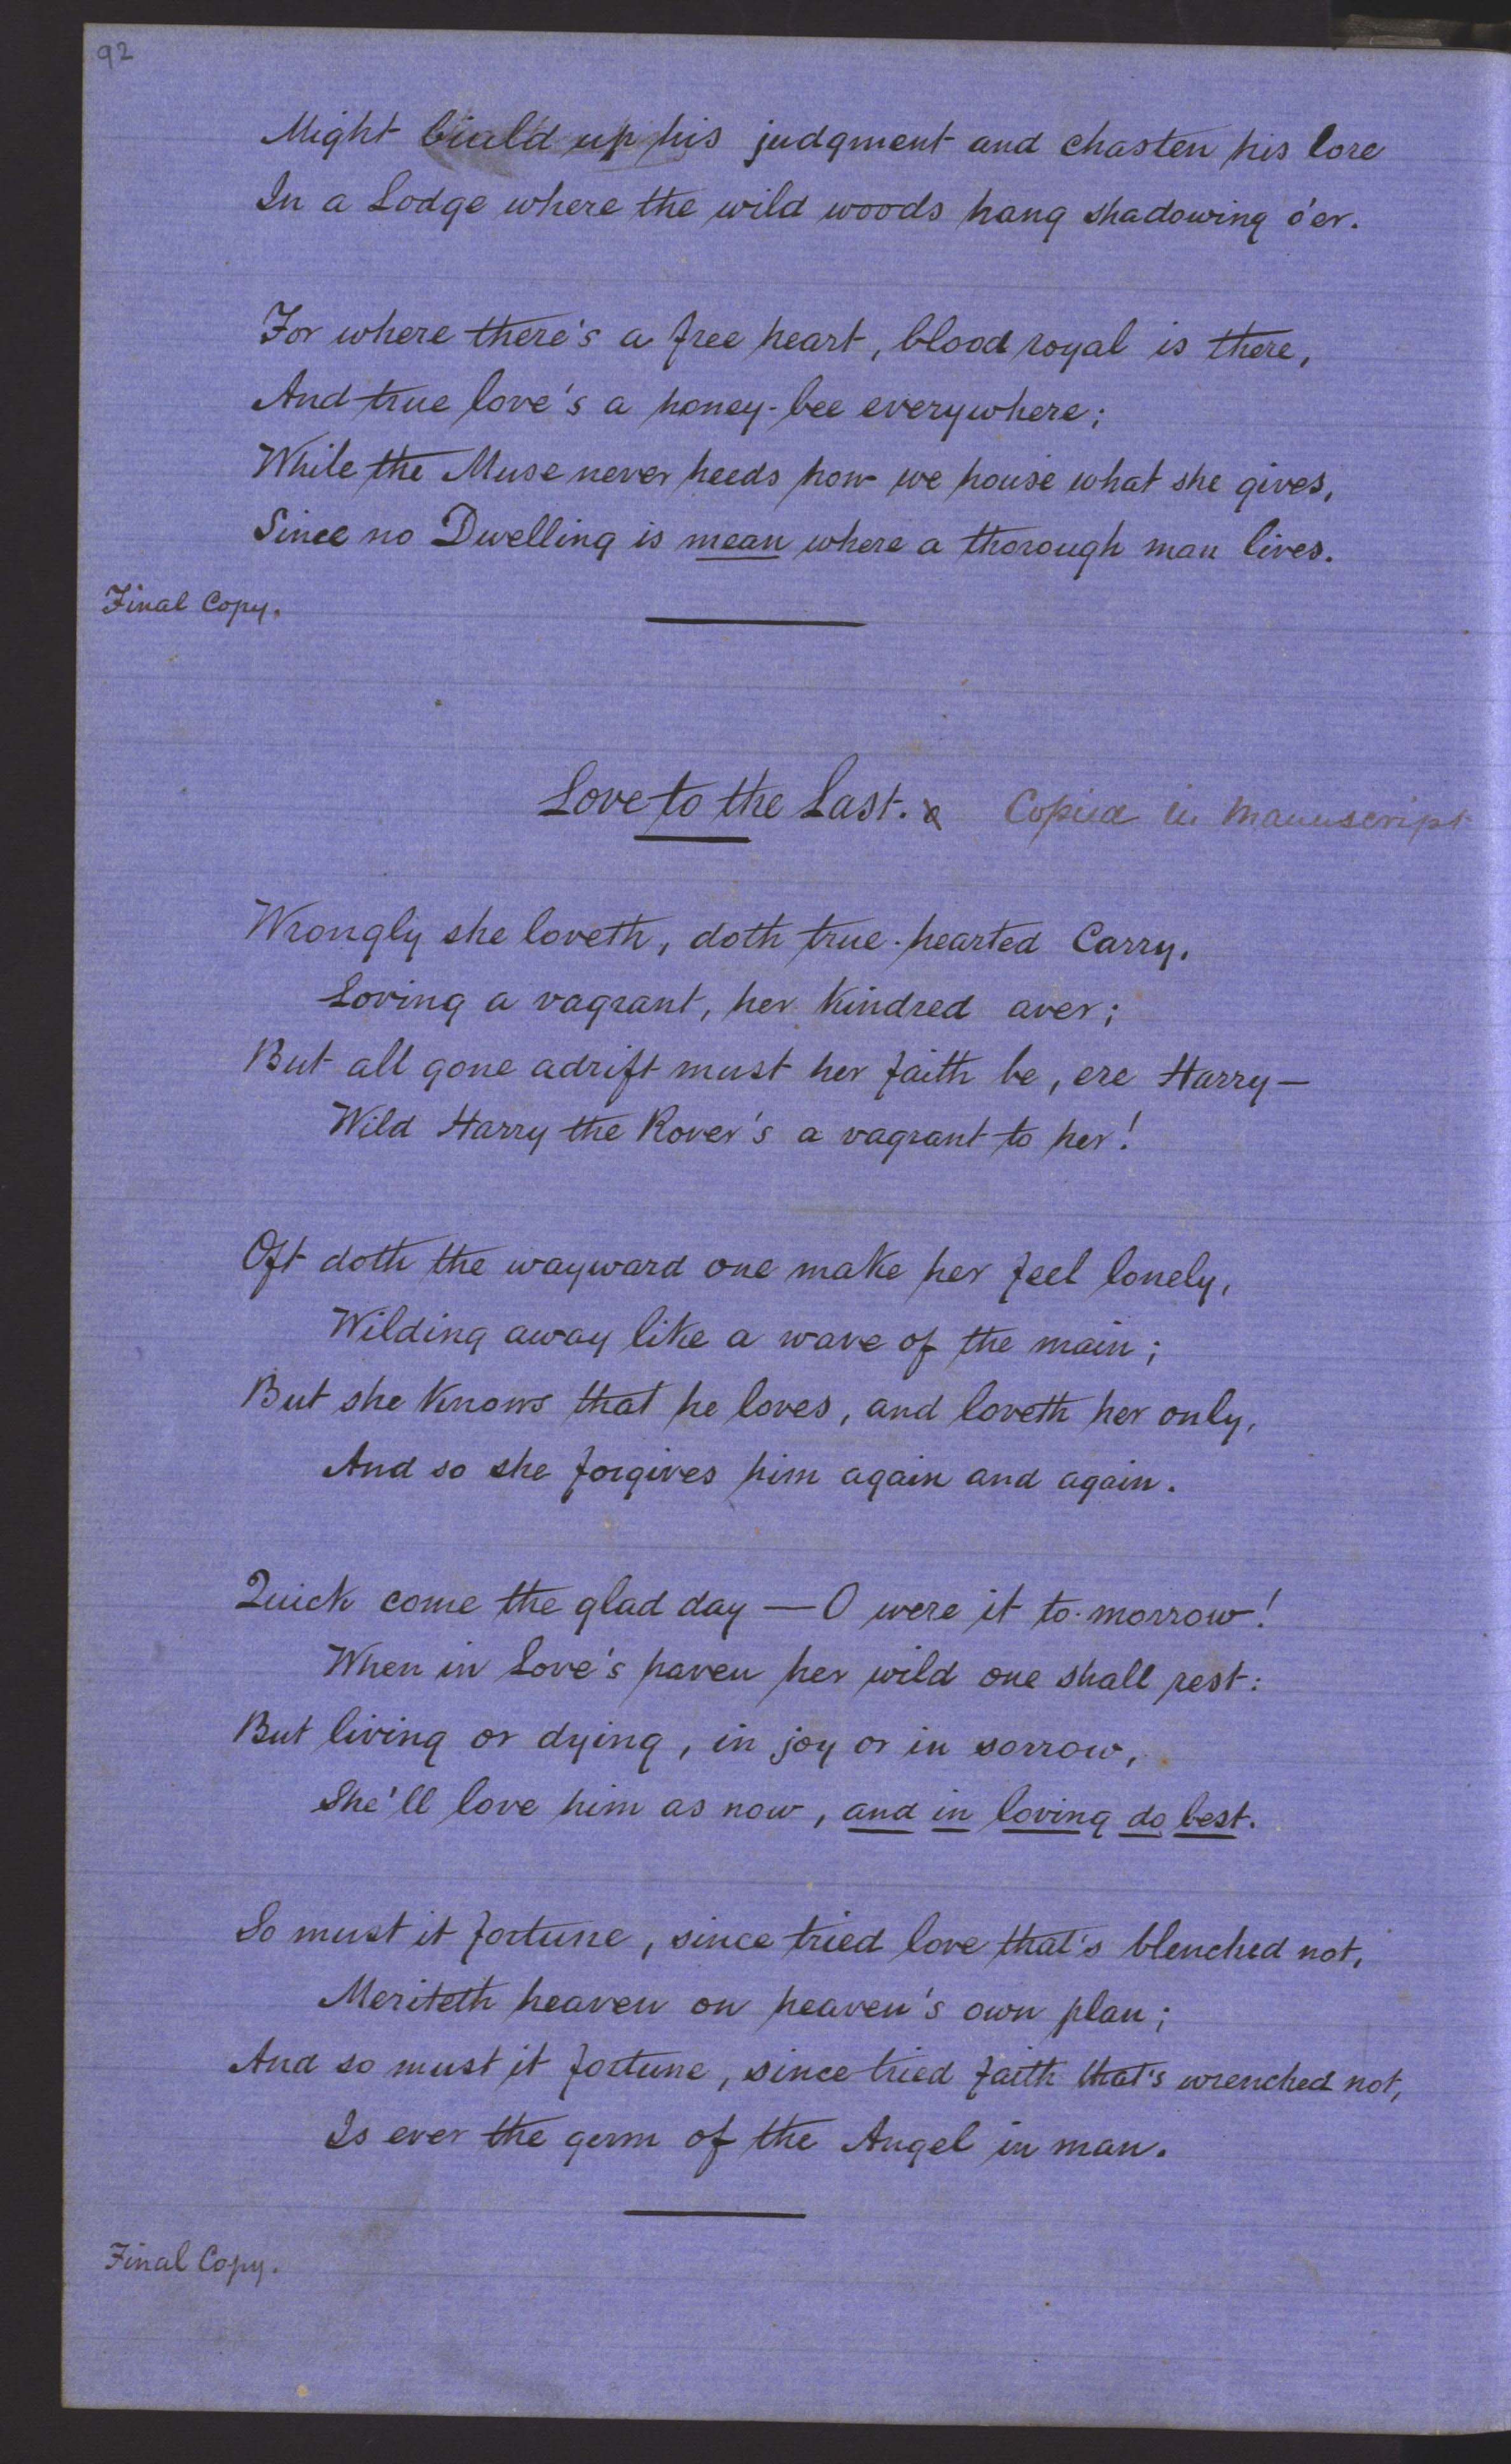 92
Might build up his judgment and chasten his lore
In a Lodge where the wild woods hang shadowing o'er.
For where there's a free heart, blood royal is there,
And true love's a honey-bee everywhere;
While the Muse never heeds how we house what she gives,
Since no Dwelling is mean where a thorough man lives.
Final Copy.
Love to the Last. x Copied in Manuscript
Wrongly she loveth, doth true-hearted Carry,
Loving a vagrant, her kindred aver;
But all gone adrift must her faith be, ere Harry—
Wild Harry the Rover's a vagrant to her!
Oft doth the wayward one make her feel lonely,
Wilding away like a wave of the main;
But she knows that he loves, and loveth her only,
And so she forgives him again and again.
Quick come the glad day — O were it to-morrow!
When in Love's haven her wild one shall rest:
But living or dying, in joy or in sorrow,
She'll love him as now, and in loving do best.
So must it fortune, since tried love that's blenched not,
Meriteth heaven on heaven's own plan;
And so must it fortune, since tried faith that's wrenched not,
Is ever the germ of the Angel in man.
Final Copy.